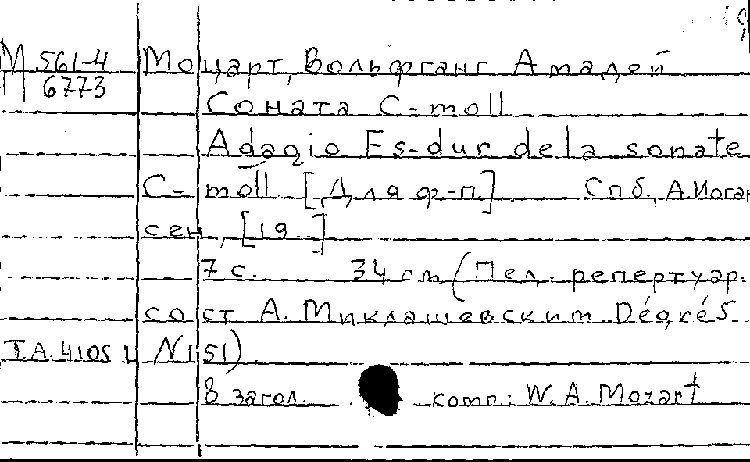 М 561-4 Моцарт, Вольфганг Амадей
П 6773
Соната C-moll
Adagio Es-dur de la sonate
C-moll [Для ф-п.] Спб., А. Иоган
сен, [19 ]
7 с. 34 см (Пед. репертуар.
сост А. Миклашевским. Degrés
N 151)
В загол. комп.: W. A. Mozart